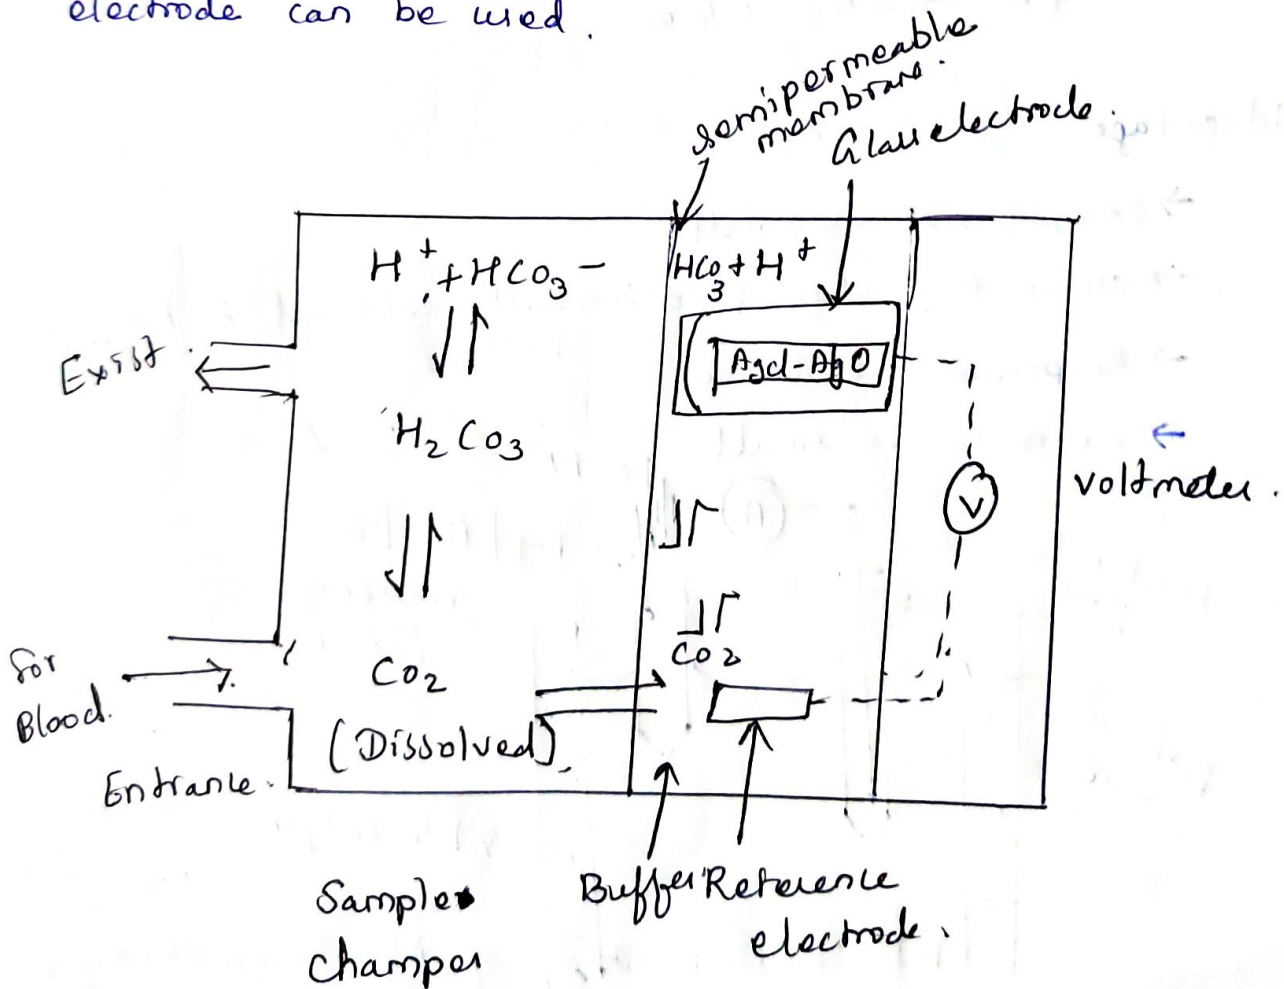 electrode can be used.
semipermeable
membrane.
Glass electrode.
H⁺ + HCO₃⁻
HCO₃ + H⁺
AgCl-AgO
Exist
H₂CO₃
voltmeter.
V
for
Blood.
Entrance.
CO₂
(Dissolved)
CO₂
Sample
champer
Buffer
Reference
electrode.